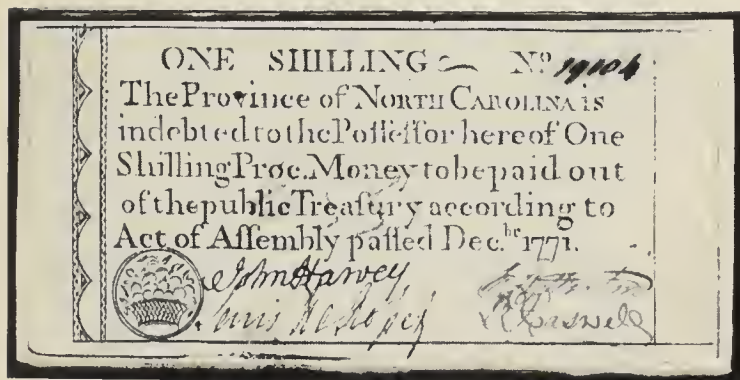 ONE SHILLING Nº 19104
The Province of NORTH CAROLINA is
indebted to the Poſſeſſor hereof One
Shilling Proc. Money to be paid out
of the public Treaſury according to
Act of Aſſembly paſſed Dec.br 1771.
John Harvey
Lewis
R Caswell